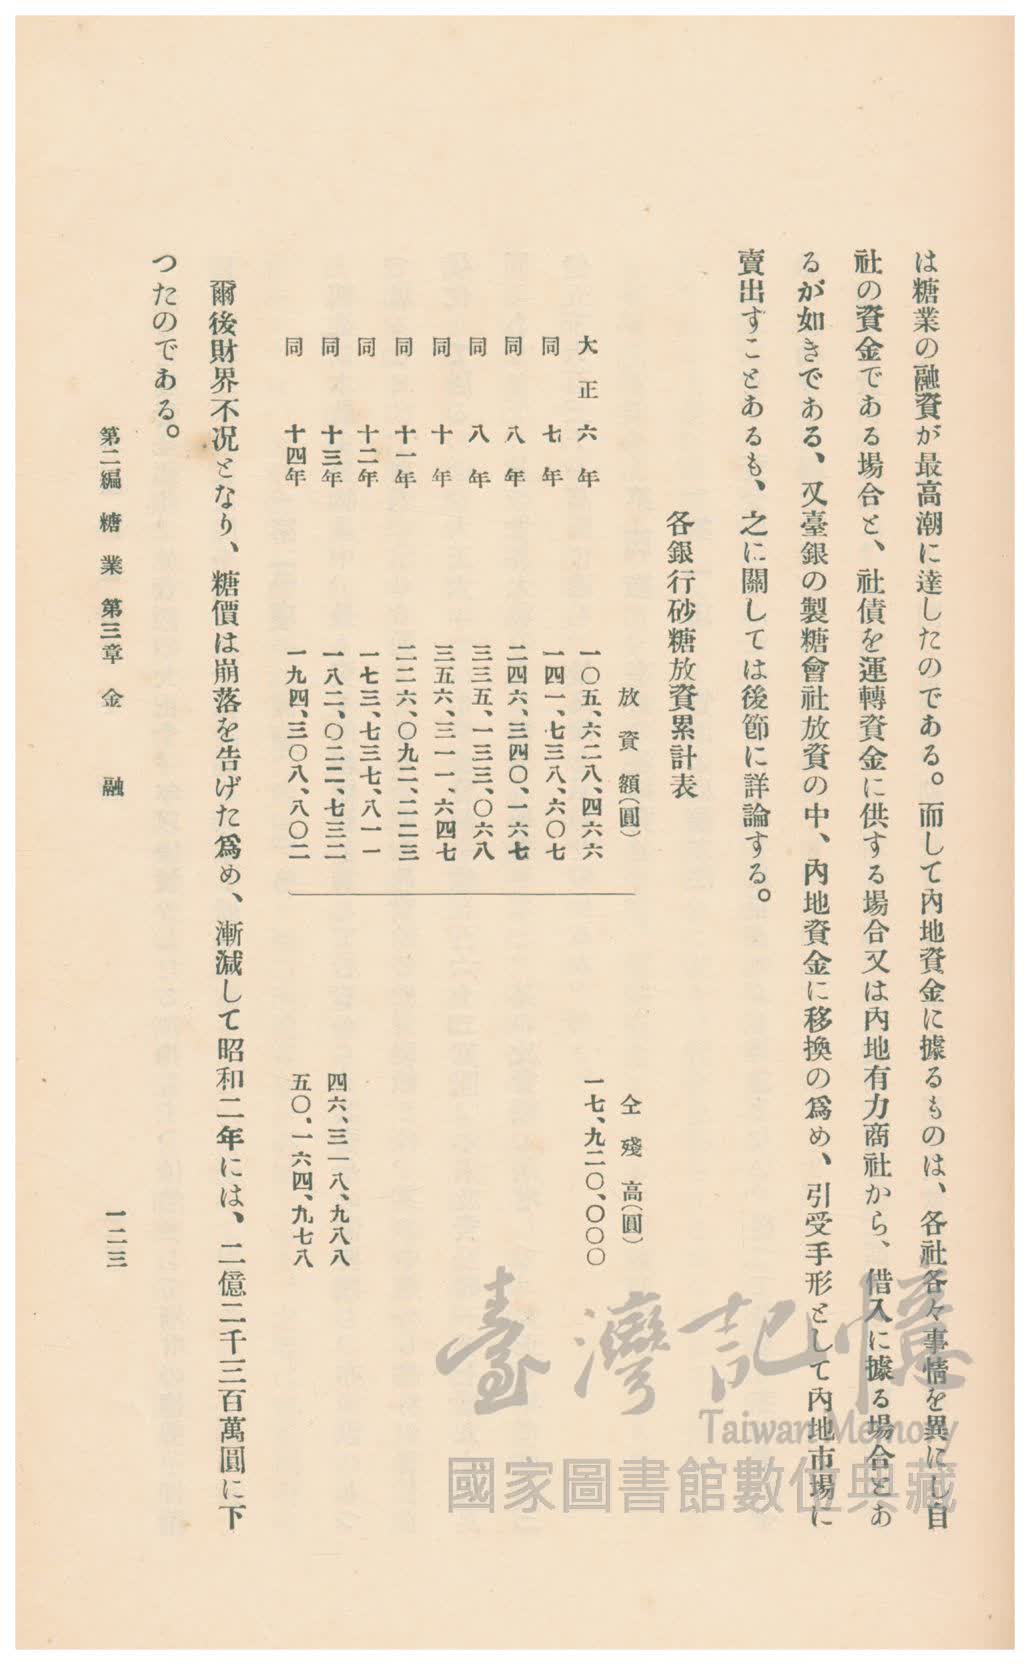 は糖業の融資が最高潮に達したのである。而して內地資金に據るものは、各社各々事情を異にし自
社の資金である場合と、社債を運轉資金に供する場合又は內地有力商社から、借入に據る場合とあ
るが如きである、又臺銀の製糖會社放資の中、內地資金に移換の爲め、引受手形として內地市場に
賣出すことあるも、之に關しては後節に詳論する。
各銀行砂糖放資累計表
放資額(圓) 仝殘高(圓)
大正六年 一〇五、六二八、四六六 一七、九二〇、〇〇〇
同七年 一四一、七三八、六〇七
同八年 二四六、三四〇、一六七
同八年 三三五、一三三、〇六八
同十年 三五六、三一一、六四七
同十一年 二二六、〇九二、二二三
同十二年 一七三、七三七、八一一
同十三年 一八二、〇二二、七三二 四六、三一八、九八八
同十四年 一九四、三〇八、八〇二 五〇、一六四、九七八
爾後財界不况となり、糖價は崩落を告げた爲め、漸減して昭和二年には、二億二千三百萬圓に下
つたのである。
第二編 糖業 第三章 金融 一二三
臺灣記憶
Taiwan Memory
國家圖書館數位典藏